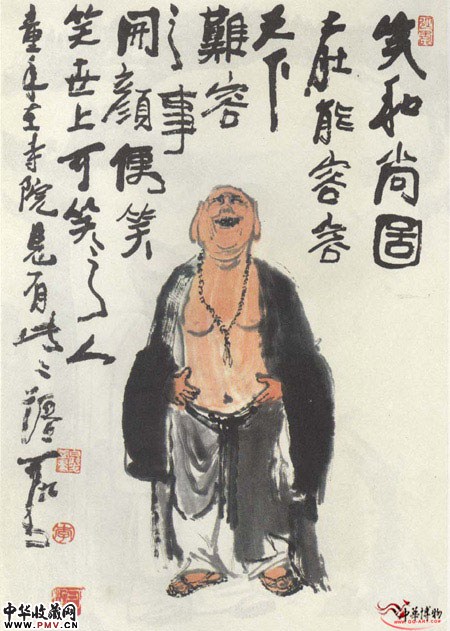 笑和尚圖
大肚能容容
天下
難容
之事
開顏便笑
笑世上可笑之人
童年至寺院見有此
中华收藏网
WWW.PMV.CN
中華博物
GG-ART.COM